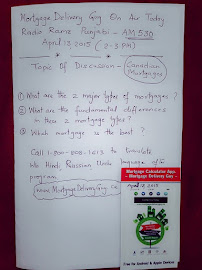 Mortgage Delivery Guy On Air Today
Radio Rama Punjabi - AM 530
April 13, 2015 (2-3 PM)
Topic Of Discussion - Canadian
Mortgages
① What are the 2 major types of mortgages?
② What are the fundamental differences
in these 2 mortgage types?
③ Which mortgage is the best?
Call 1-800-808-1613 to
We Hindi, Russian, Urdu language
program.
www.MortgageDeliveryGuy.ca
Mortgage Calculator App.
- Mortgage Delivery Guy -
Free for Android & Apple Devices